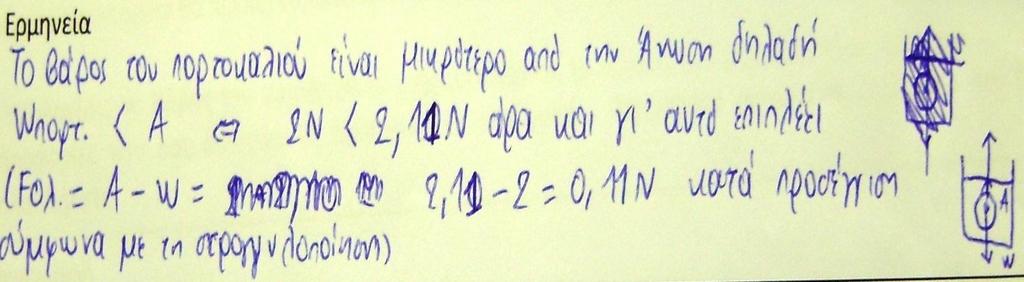 Ερμηνεία
Το βάρος του πορτοκαλιού είναι μικρότερο από την Άνωση δηλαδή
Wπορτ. < A ⇔ 2N < 2,11N άρα και γι' αυτό επιπλέει
(Fολ. = A - W = 2,11 - 2 = 0,11N κατά προσέγγιση
σύμφωνα με τη στρογγυλοποίηση)
A
W